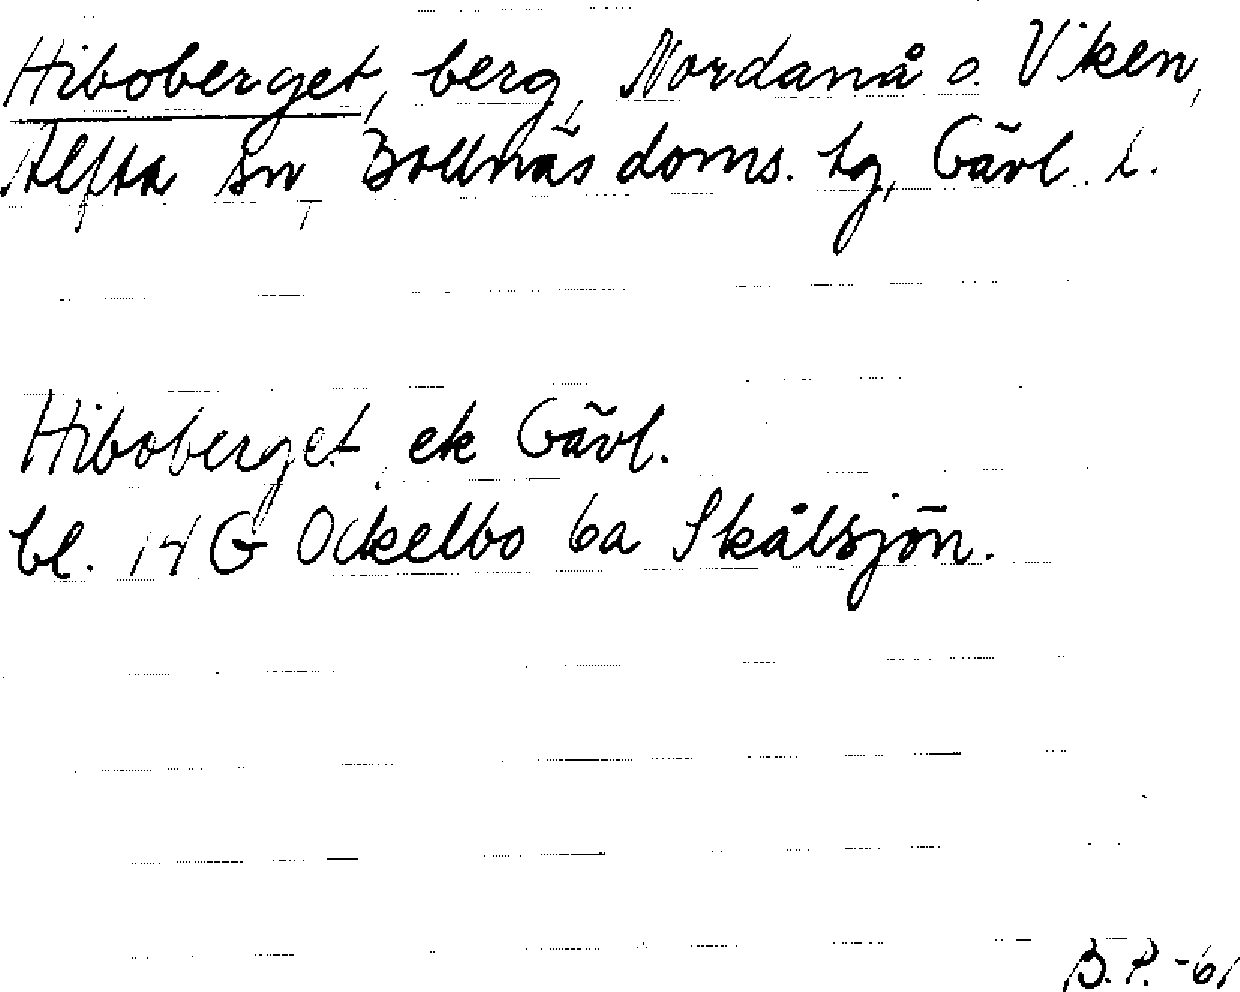 Hiboberget, berg, Nordanå o. Viken,
Alfta sn, Bollnäs doms. tg, Gävl. l.
Hiboberget ek Gävl.
bl. 14 G Ockelbo 6a Skålsjön.
B.P. -61